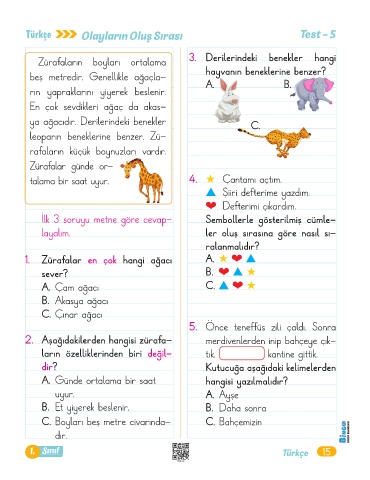 Türkçe
Olayların Oluş Sırası
Test - 5
Zürafaların boyları ortalama
beş metredir. Genellikle ağaçla-
rın yapraklarını yiyerek beslenir.
En çok sevdikleri ağaç da akas-
ya ağacıdır. Derilerindeki benekler
leoparın beneklerine benzer. Zü-
rafaların küçük boynuzları vardır.
Zürafalar günde or-
talama bir saat uyur.
İlk 3 soruyu metne göre cevap-
layalım.
1. Zürafalar en çok hangi ağacı
sever?
A. Çam ağacı
B. Akasya ağacı
C. Çınar ağacı
2. Aşağıdakilerden hangisi zürafa-
ların özelliklerinden biri değil-
dir?
A. Günde ortalama bir saat
uyur.
B. Et yiyerek beslenir.
C. Boyları beş metre civarında-
dır.
3. Derilerindeki benekler hangi
hayvanın beneklerine benzer?
A.
B.
C.
4. ★ Çantamı açtım.
▲ Şiiri defterime yazdım.
❤ Defterimi çıkardım.
Sembollerle gösterilmiş cümle-
ler oluş sırasına göre nasıl sı-
ralanmalıdır?
A. ★ ❤ ▲
B. ❤ ▲ ★
C. ▲ ❤ ★
5. Önce teneffüs zili çaldı. Sonra
merdivenlerden inip bahçeye çık-
tık. kantine gittik.
Kutucuğa aşağıdaki kelimelerden
hangisi yazılmalıdır?
A. Ayşe
B. Daha sonra
C. Bahçemizin
1. Sınıf
Türkçe 15